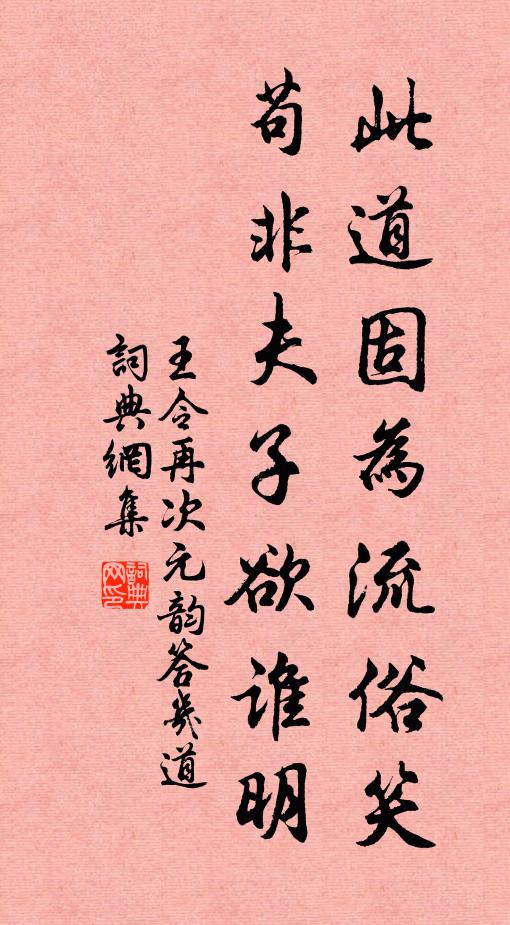 此道固為流俗笑
苟非夫子欲誰明
王令再次元韵答幾道
詞典網集
詞典网印